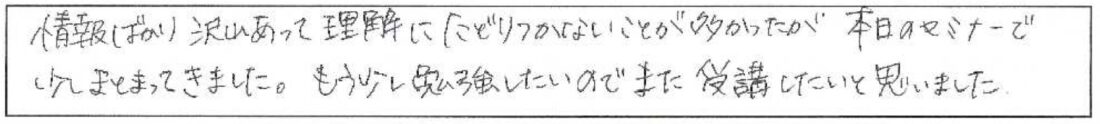 情報ばかり沢山あって理解にたどりつかないことが多かったが 本日のセミナーで
少しまとまってきました。もう少し勉強したいのでまた受講したいと思いました